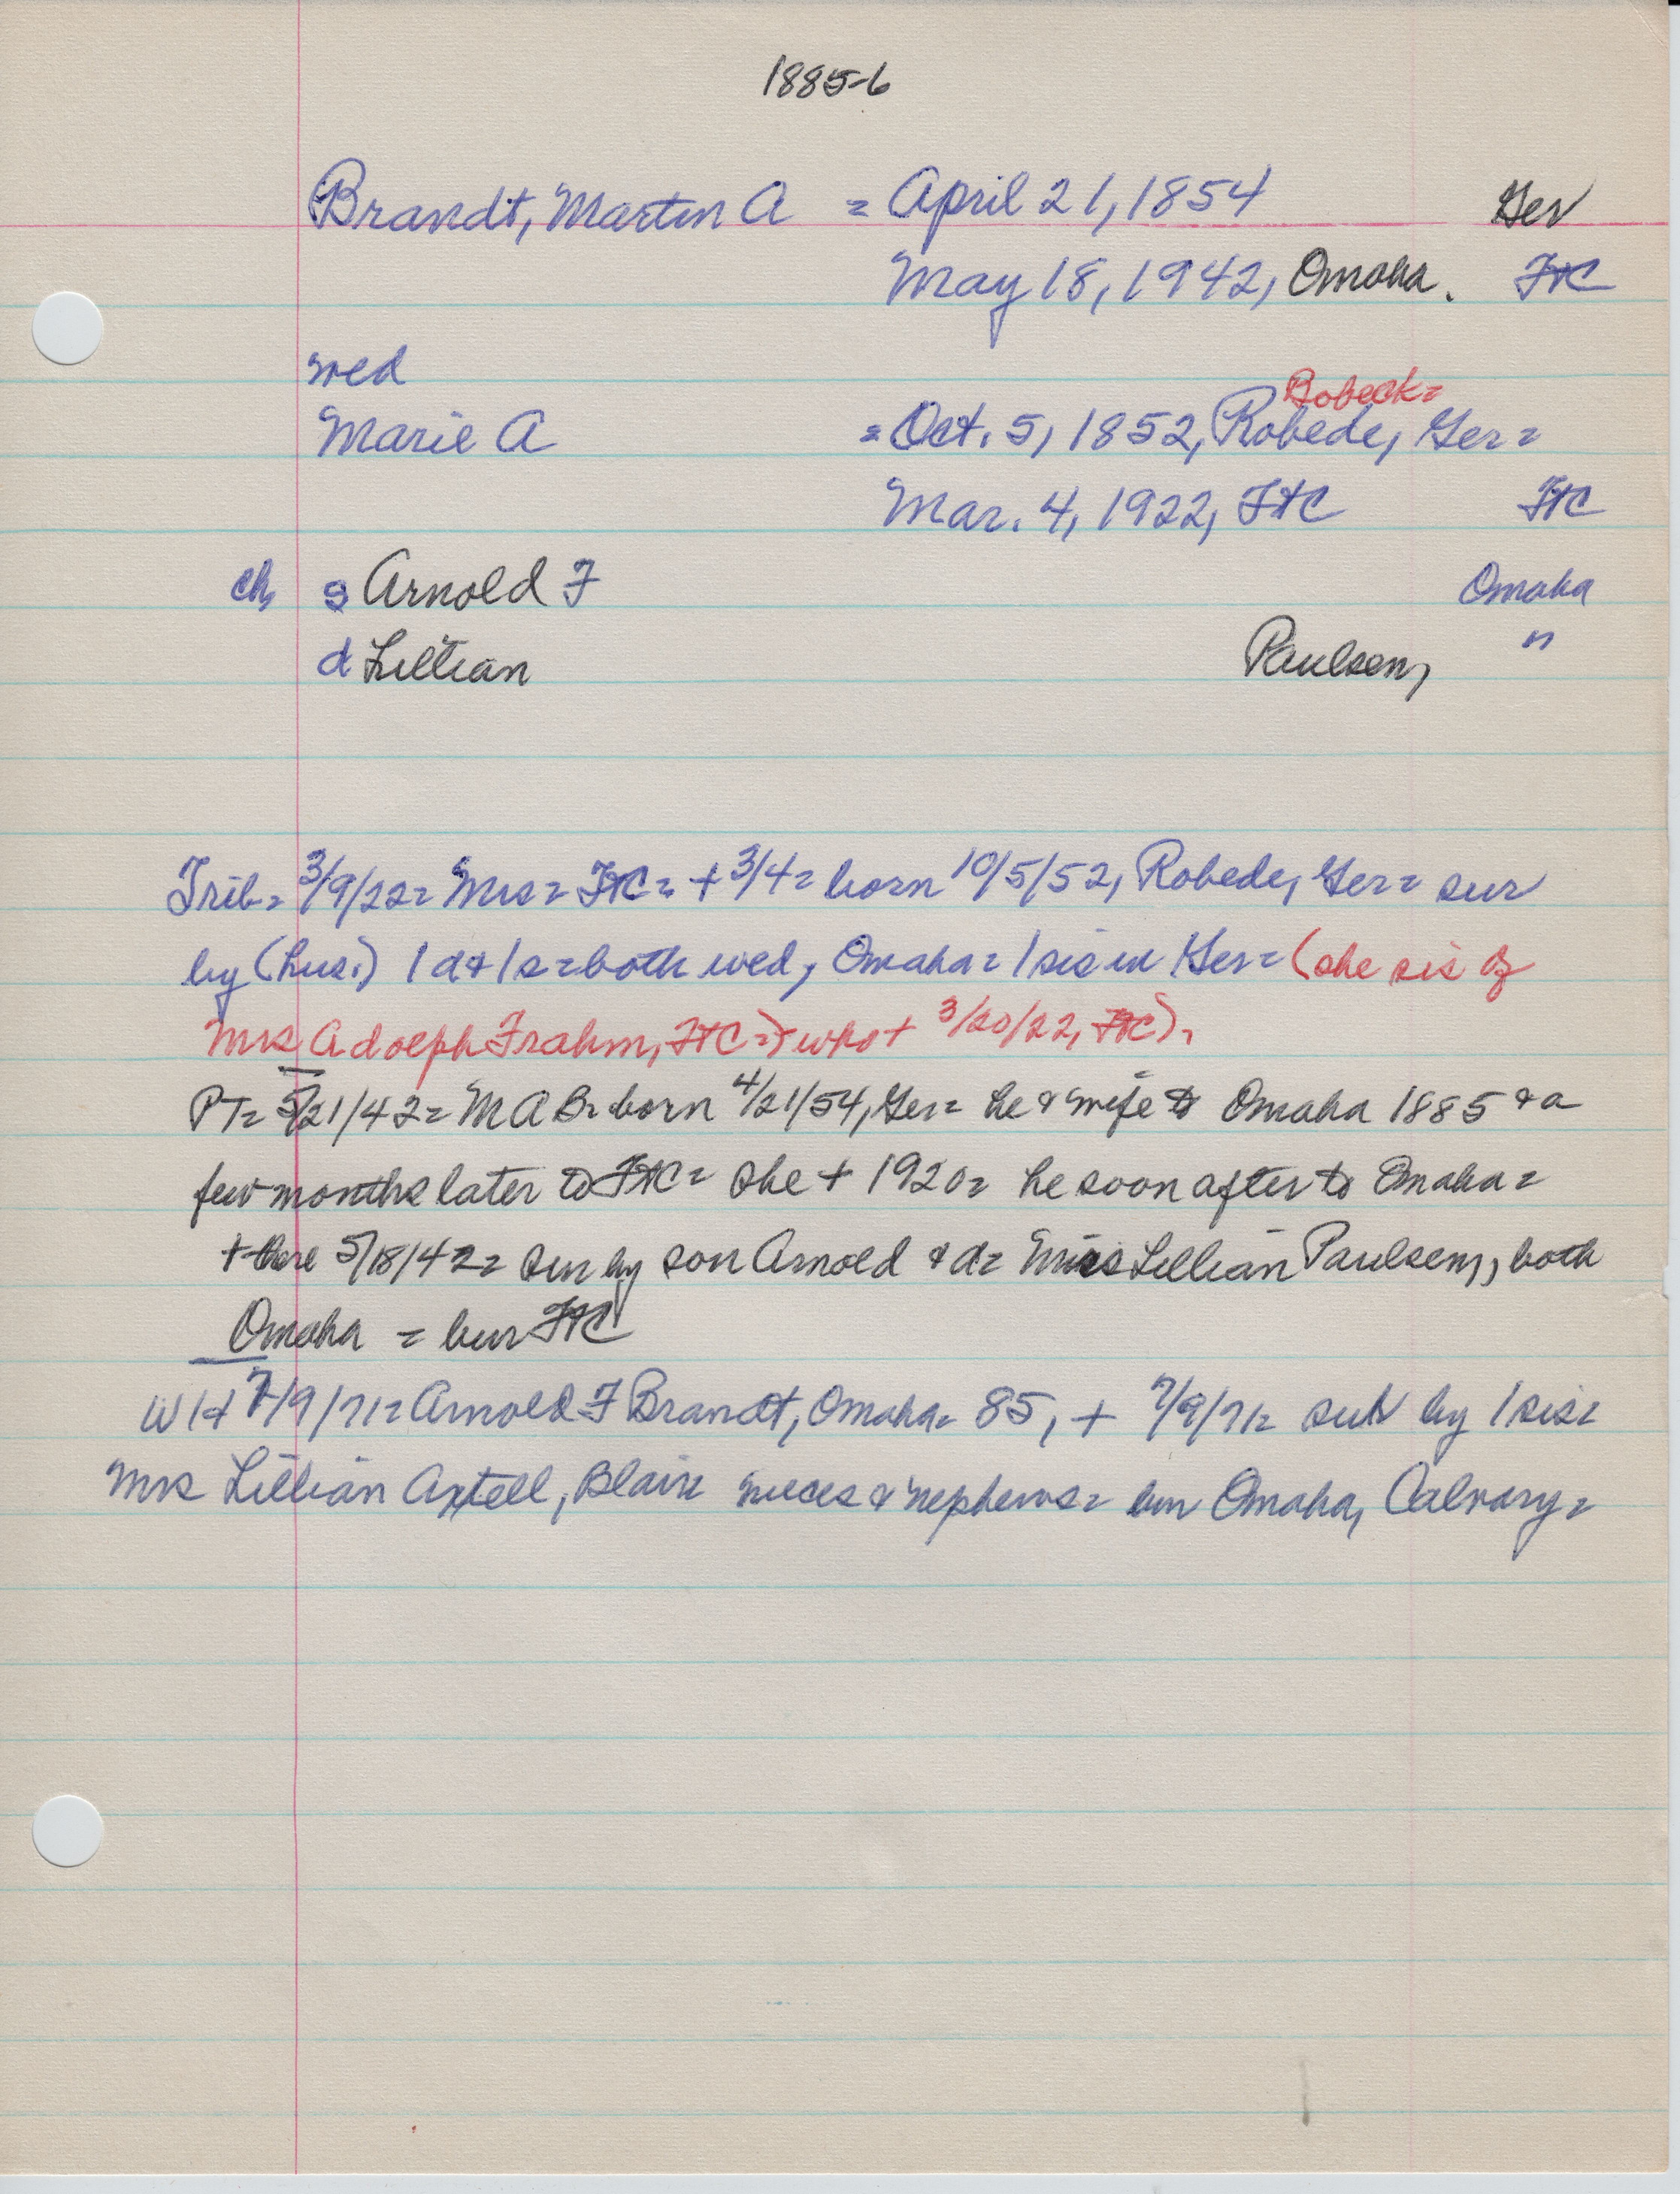 1885-6
Brandt, Martin A = April 21, 1854 Ger
May 18, 1942, Omaha. FtC
wed
Bobeck=
Marie A = Oct. 5, 1852, Robede, Ger=
Mar. 4, 1922, FtC FtC
ch, s Arnold F Omaha
d Lillian Paulsen, "
Trib= 3/9/22= Mrs= FtC= + 3/4= born 10/5/52, Robede, Ger= sur
by (hus.) 1 d & 1 s= both wed, Omaha= 1 sis in Ger= (she sis of
Mrs Adolph Frahm, FtC=) who + 3/20/22, FtC).
PT= 5/21/42= M A B= born 4/21/54, Ger= he & wife to Omaha 1885 & a
few months later to FtC= she + 1920= he soon after to Omaha=
+ there 5/18/42= sur by son Arnold & d= Lillian Paulsen, both
Omaha = bur FtC
WH 7/9/71= Arnold F Brandt, Omaha= 85, + 7/9/71= sur by 1 sis=
Mrs Lillian Axtell, Blair nieces & nephews= bur Omaha, Calvary=